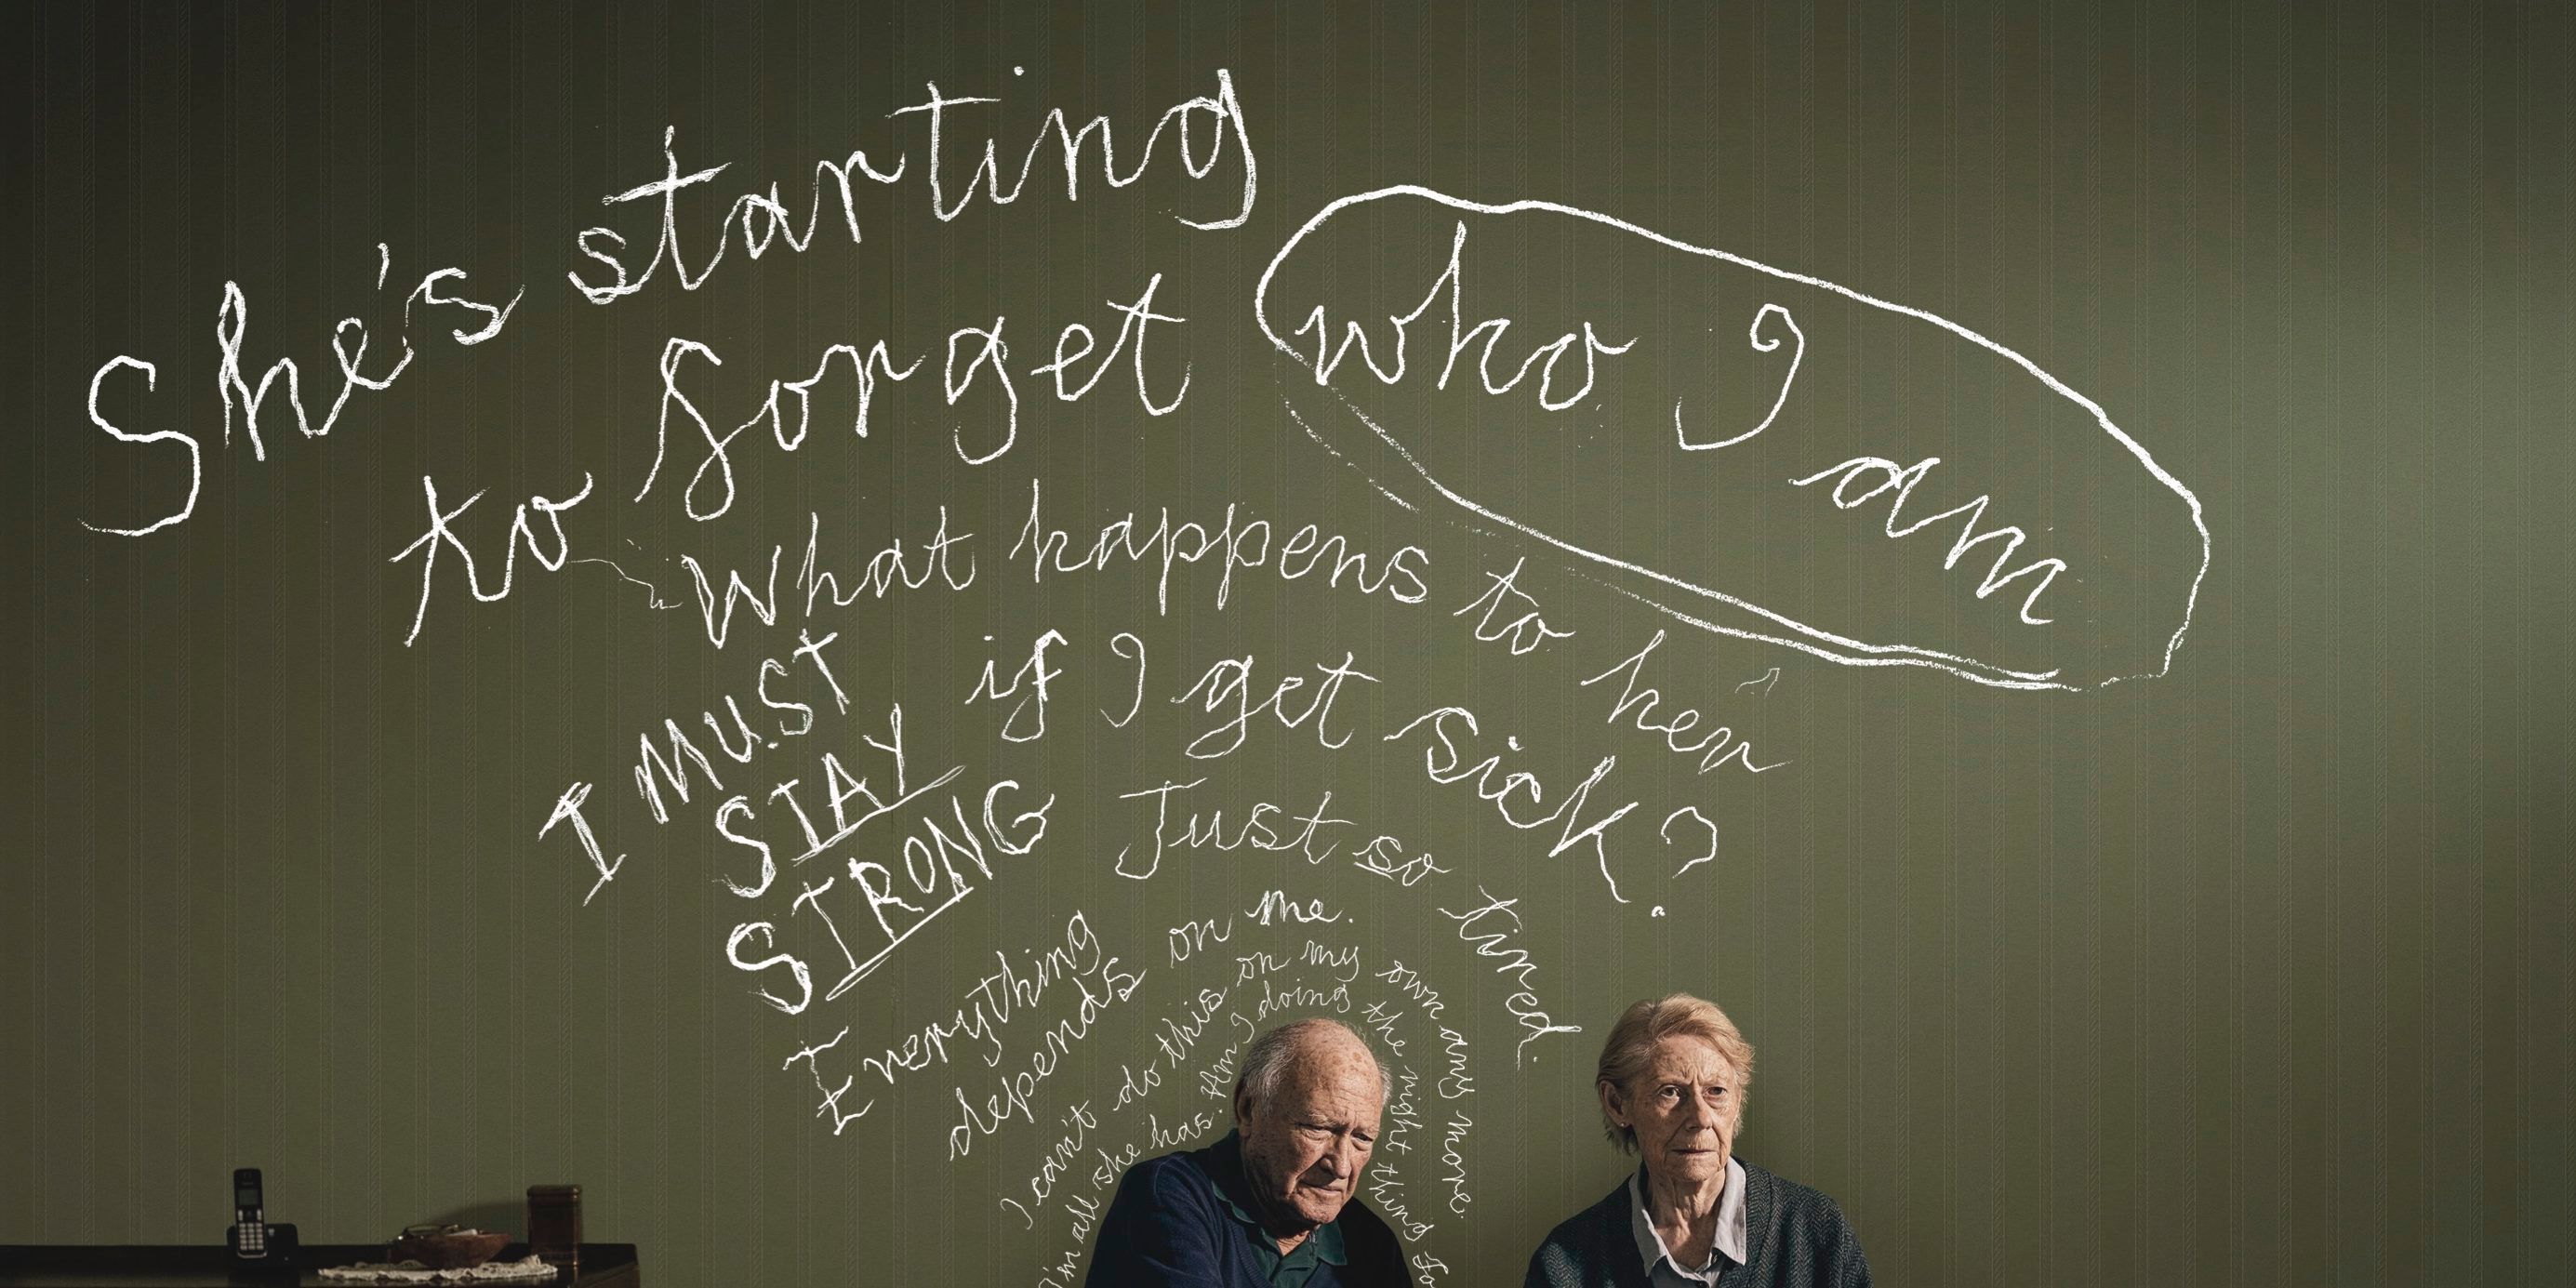 She's starting
to forget
who I
am
What happens to her
if I get sick?
I MUST
STAY
STRONG
Just so tired.
Everything
depends on me.
I can't do this on my own any more.
I'm all she has. Am I doing the right thing fo